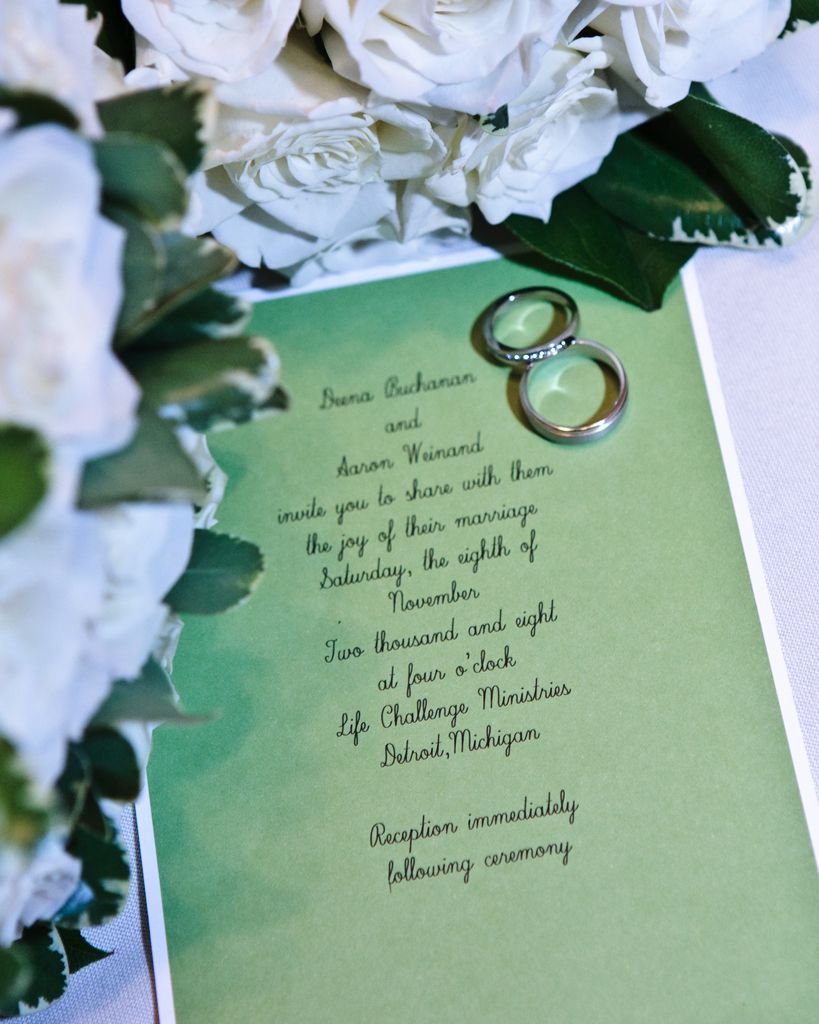 Deena Buchanan
and
Aaron Weinand
invite you to share with them
the joy of their marriage
Saturday, the eighth of
November
Two thousand and eight
at four o'clock
Life Challenge Ministries
Detroit,Michigan
Reception immediately
following ceremony